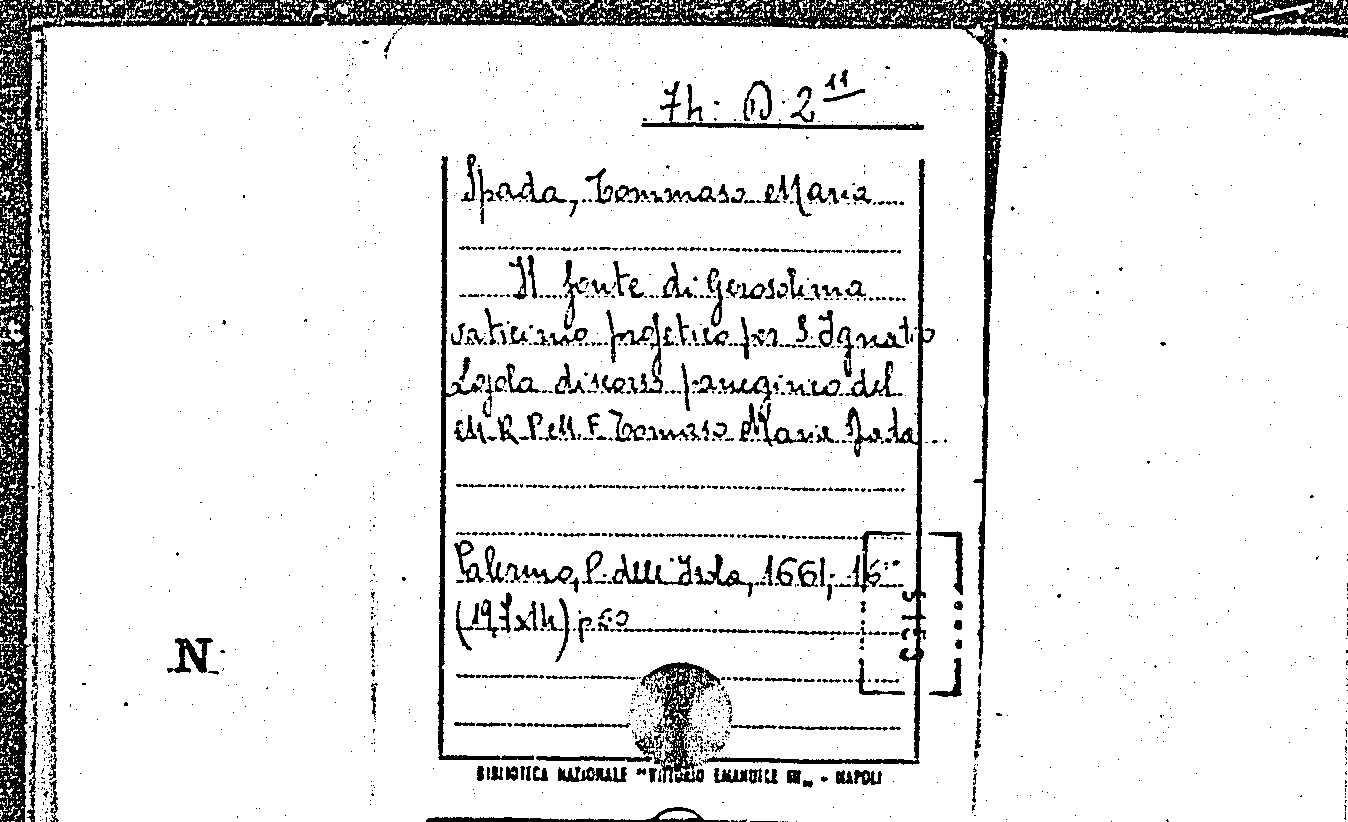 7h: D. 2 11
Spada, Tommaso Maria
Il fonte di Gerosolima
vaticinio profetico per S. Ignatio
Lojola discorso panegirico del
M. R. P. M. F. Tomaso Maria Spada
Palermo, P. dell'Isola, 1661; 16°
(19,7x14) p.
N
SBIS
BIBLIOTECA NAZIONALE "VITTORIO EMANUELE III„ - NAPOLI